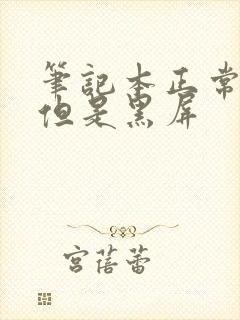 筆記本正常
但是黑屏
宮蓓蕾